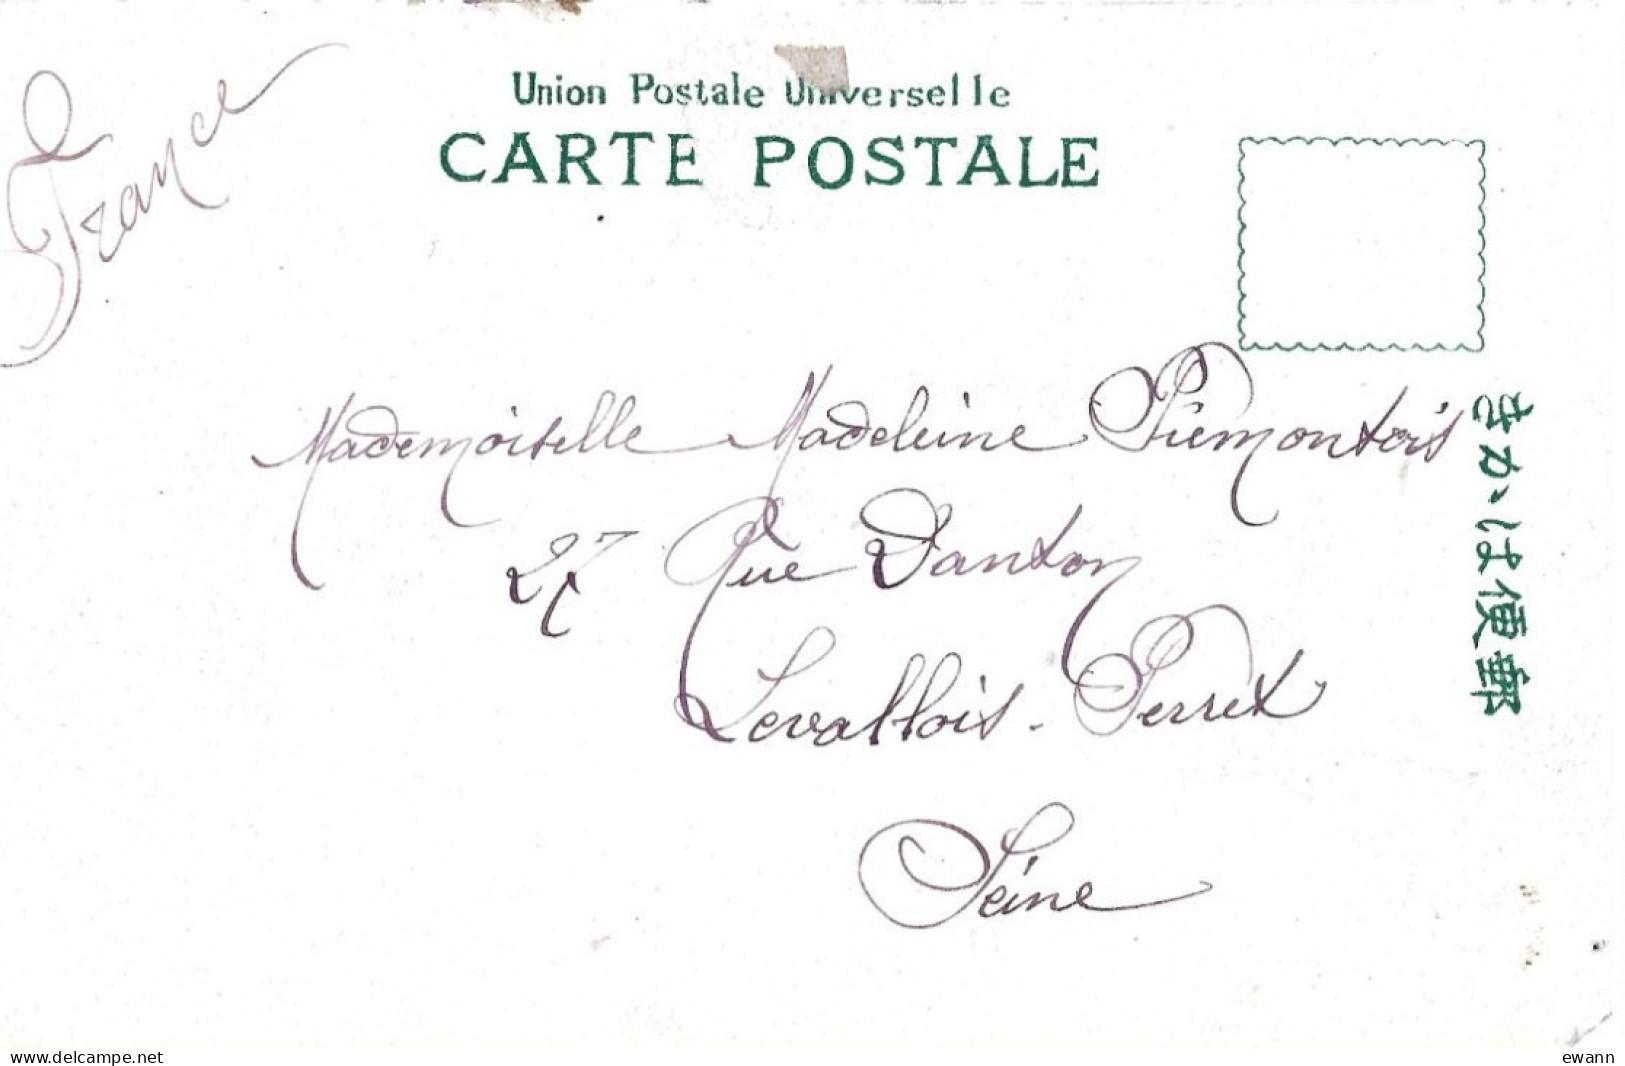 France
Union Postale Universelle
CARTE POSTALE
Mademoiselle Madeleine Piémontois
27 Rue Danton
Levallois-Perret
Seine
きかは便郵
www.delcampe.net
ewann